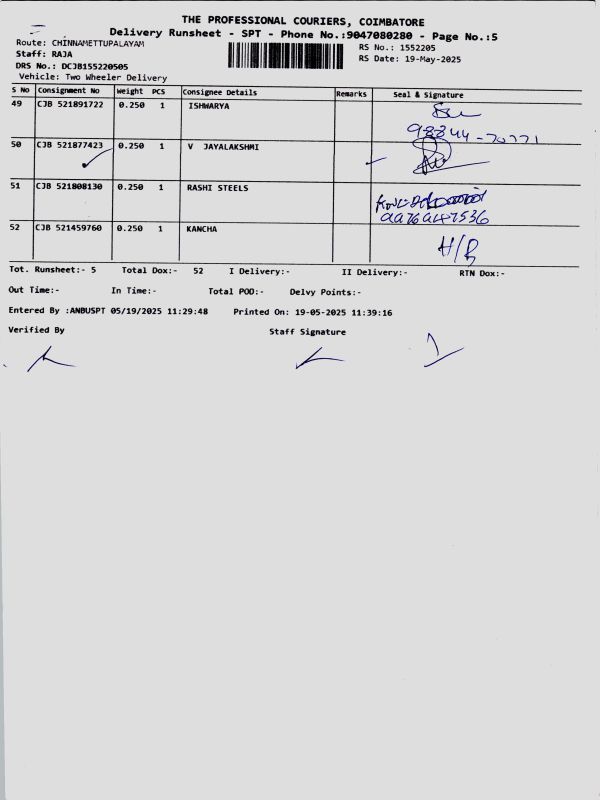 THE PROFESSIONAL COURIERS, COIMBATORE
Delivery Runsheet - SPT - Phone No.:9047080280 - Page No.:5
Route: CHINNAMETTUPALAYAM
RS No.: 1552205
Staff: RAJA
RS Date: 19-May-2025
DRS No.: DCJB155220505
Vehicle: Two Wheeler Delivery
S No Consignment No Weight PCS Consignee Details Remarks Seal & Signature
49 CJB 521891722 0.250 1 ISHWARYA
98844-70771
50 CJB 521877423 0.250 1 V JAYALAKSHMI
51 CJB 521808130 0.250 1 RASHI STEELS
52 CJB 521459760 0.250 1 KANCHA
H/R
Tot. Runsheet:- 5 Total Dox:- 52 I Delivery:- II Delivery:- RTN Dox:-
Out Time:- In Time:- Total POD:- Delvy Points:-
Entered By :ANBUSPT 05/19/2025 11:29:48 Printed On: 19-05-2025 11:39:16
Verified By Staff Signature